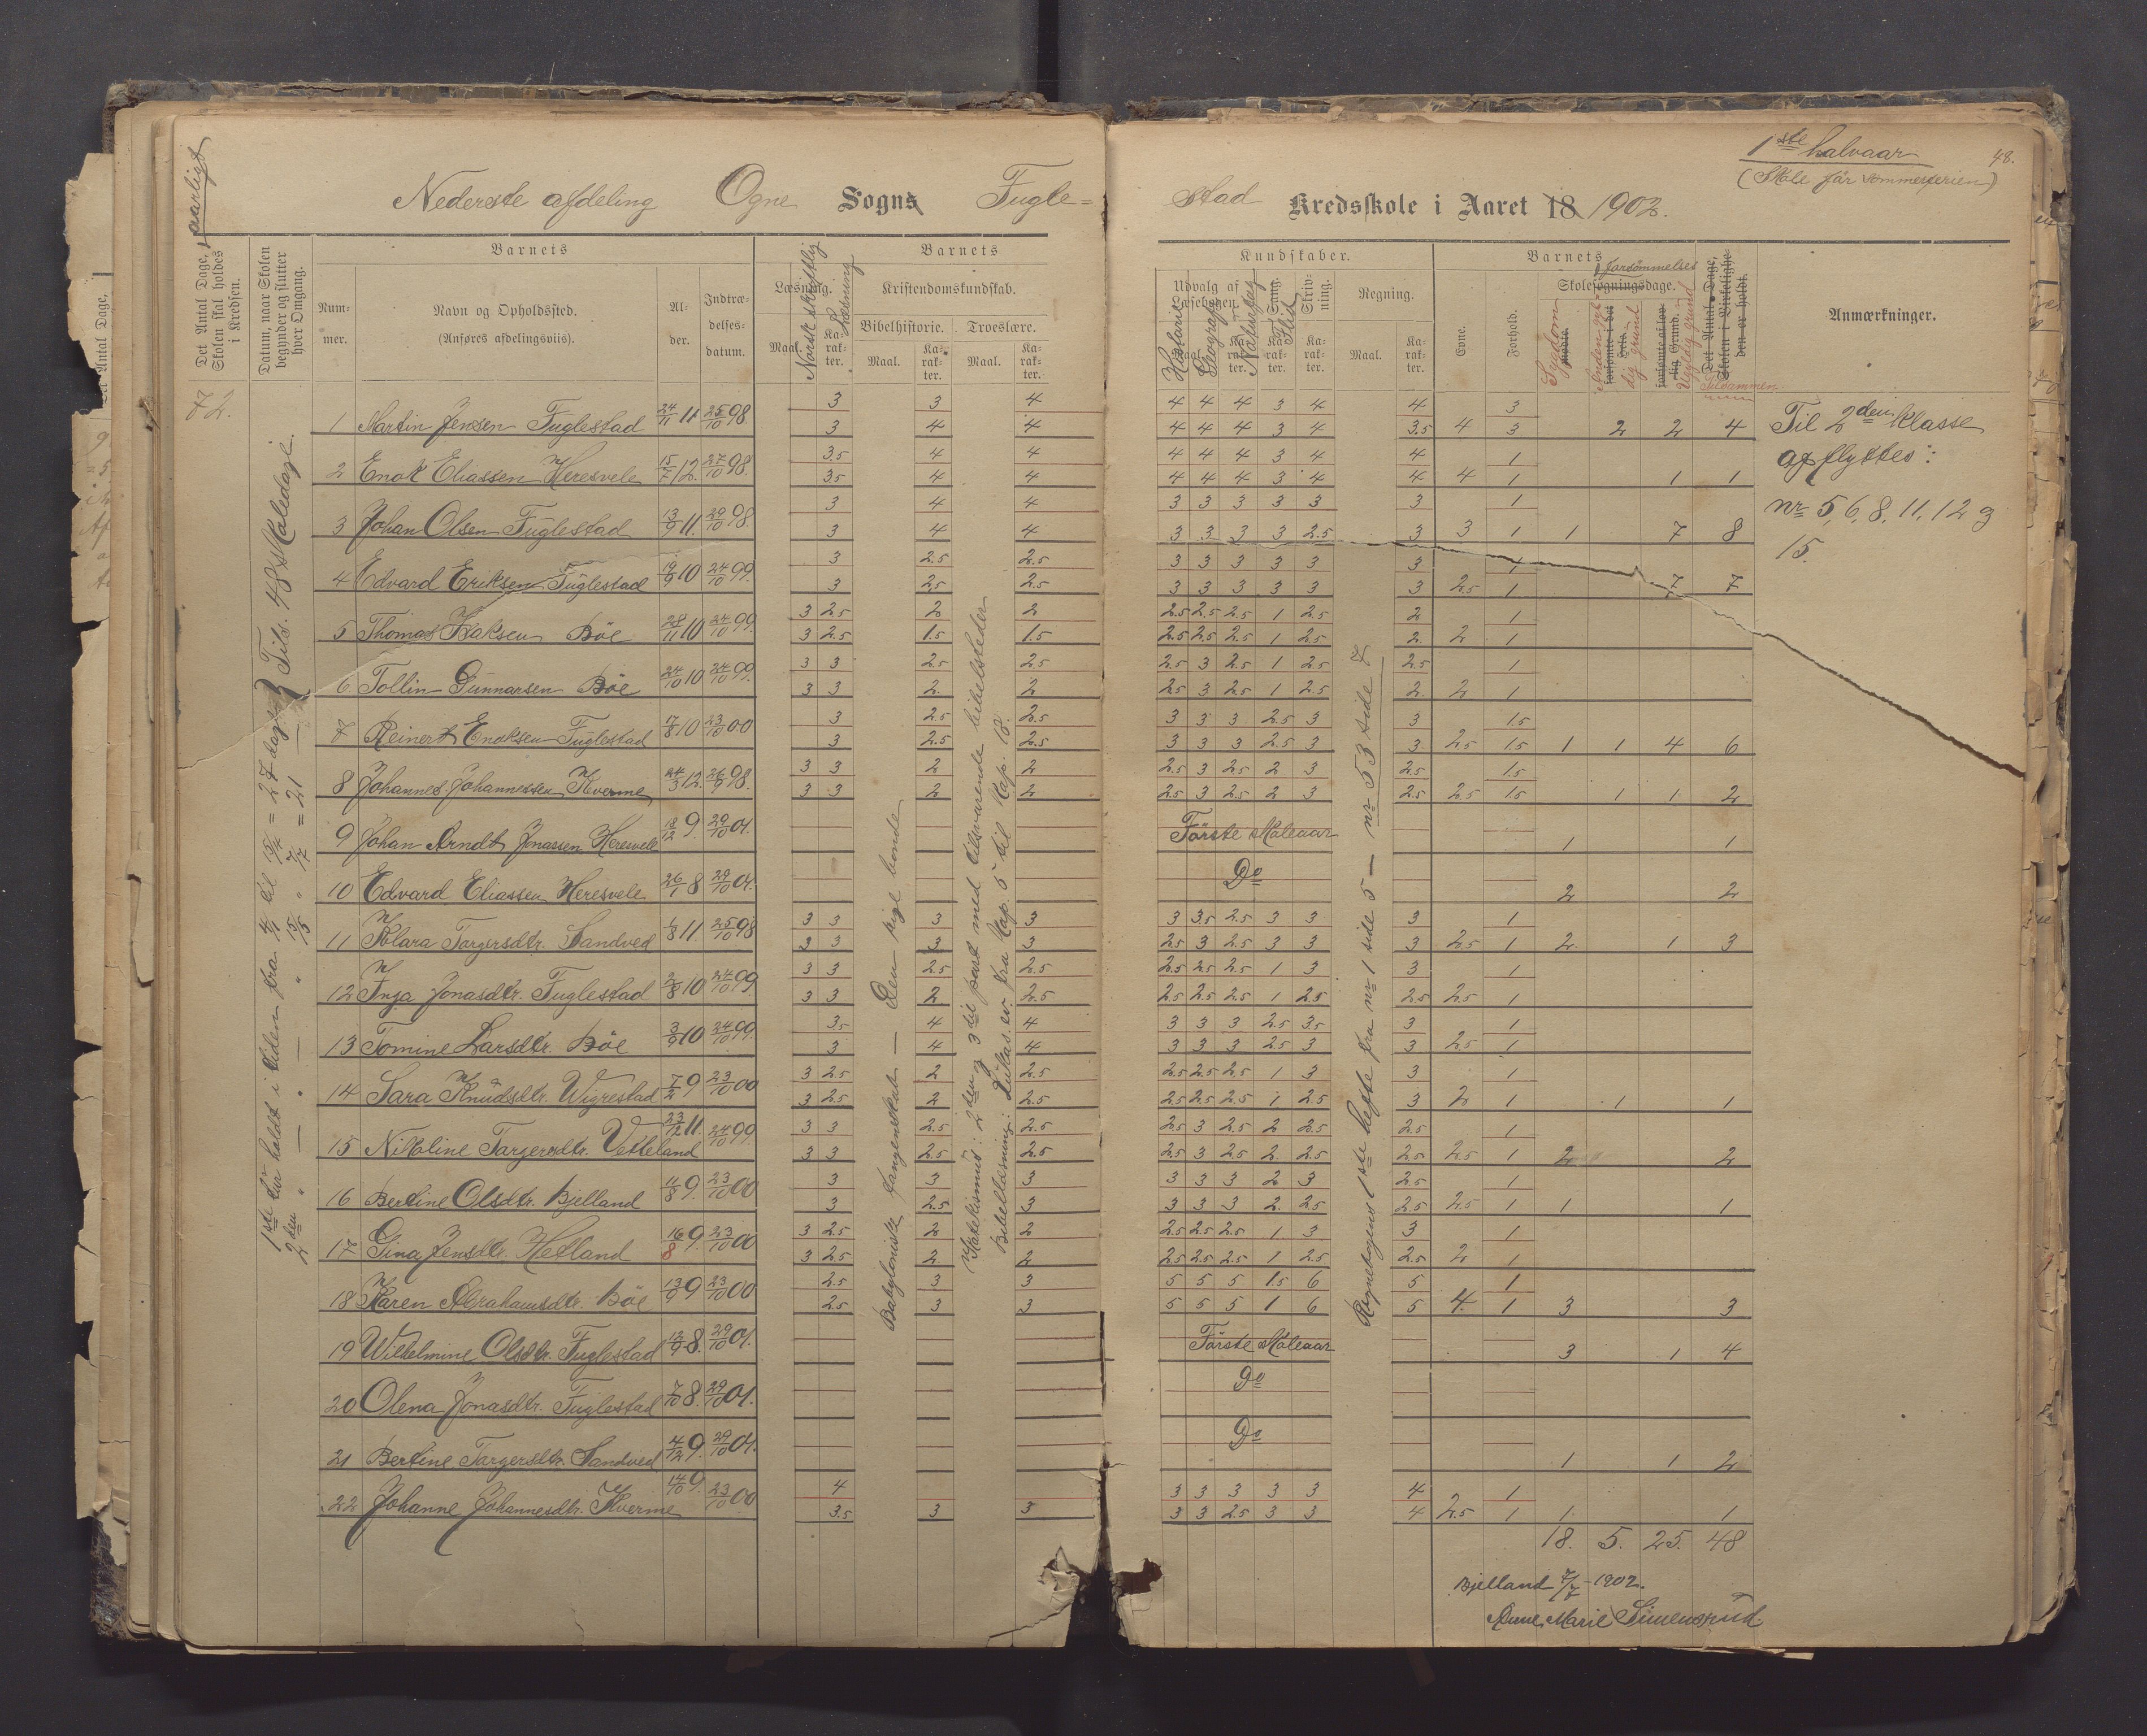 1ste halvaar
(Skole før sommerferien)
48.
Nederste afdeling Ogne Sogns Fugle=
stad Kredsskole i Aaret 18 1902.
Det Antal Dage, Skolen skal holdes i Kredsen.
aarligt
Datum, naar Skolen begynder og slutter hver Omgang.
Barnets
Num-mer.
Navn og Opholdssted.
(Anføres afdelingsviis).
Al-der.
Indtræ-delses-datum.
Barnets
Læsning.
Maal.
Norsk skriftlig
Ka-rak-ter.
Læsning
Kristendomskundskab.
Bibelhistorie.
Troeslære.
Maal.
Ka-rak-ter.
Maal.
Ka-rak-ter.
Kundskaber.
Udvalg af Læsebogen.
Historie
Geografi
Naturfag
Sang.
Flid
Skriv-ning.
Regning.
Maal.
Ka-rak-ter.
Barnets
Evne.
Forhold.
forsømmelses
Skolesøgningsdage.
Sygdom
Det Antal Dage, Skolen i Virkelighe-den er holdt.
Tilsammen
Anmærkninger.
72.
1 Martin Jensen Fuglestad 24/11 11 25/10 98 3 3 4 4 4 4 3 4 4 3
3 4 4 4 4 4 3 4 3.5 4 3 2 2 4
2 Enok Eliassen Heresvele 15/7 12. 27/10 98. 3.5 4 4 4 4 4 3 4 4 1
3.5 4 4 4 4 4 3 4 4 4 1 1 1
3 Johan Olsen Fuglestad 13/9 11. 29/10 98. 3 4 4 3 3 3 3 3 3 1
3 4 4 3 3 3 3 2.5 3 3 1 1 7 8
4 Edvard Eriksen Fuglestad 19/9 10 24/10 99. 3 2.5 2.5 3 3 3 3 3 3 1
3 2.5 2.5 3 3 3 3 3 3 2.5 1 7 7
5 Thomas Isaksen Böe 28/11 10 24/10 99. 3 2.5 2 2 2.5 2.5 2.5 1 2.5 2 1
3 2.5 1.5 1.5 2.5 2.5 2.5 1 2.5 2. 2 1
6 Tollin Gunnarsen Böe 24/10 10 24/10 99. 3 3 2.5 2.5 2.5 3 2.5 1 2.5 2.5 1
3 3 2. 2 2.5 3 2.5 1 2.5 2. 2 1
7 Reinert Enoksen Fuglestad 17/8 10 23/10 00 3 2.5 2.5 3 3 3 2.5 3 3 1.5
3 2.5 2.5 3 3 3 2.5 3 3 2.5 1.5 1 1 4 6
8 Johannes Johannessen Kverme 24/3 12. 26/9 98. 3 3 2 2 2.5 3 2.5 2 3 2.5 1.5
3 3 2 2 2.5 3 2.5 2 3 2.5 2.5 1.5 1 1 2
9 Johan Arndt Jonassen Heresvele 18/12 9 29/10 01. Første skoleaar 1 1
10 Edvard Eliassen Heresvele 26/1 8 29/10 01. Do 2 2
11 Klara Torgersdtr. Sandved 6/8 11. 25/10 98 3 3 3 3 3 3.5 2.5 3 3 3 1
3 3 3 3 2.5 3 2.5 3 3 3 2.5 1 2. 1 3
12 Inga Jonasdtr. Fuglestad 2/8 10 24/10 99. 3 3 2.5 2.5 2.5 2.5 2.5 1 3 3 1
3 3 2 2.5 2.5 2.5 2.5 1 2.5 2.5 2.5 1
13 Tomine Larsdtr. Böe 3/9 10 24/10 99. 3.5 4 4 3 3 3 2.5 3.5 3 1
3 4 4 3 3 3 2.5 3 3 2.5 1
14 Sara Knudsdtr. Wigrestad 7/2 9 23/10 00 3 2.5 2 2.5 2.5 2.5 2.5 1 3 3 1
3 2.5 2 2.5 2.5 2.5 2.5 1 2.5 3 2 1 1 1
15 Nikoline Torgersdtr. Vetteland 23/12 11. 24/10 99 3 3 2.5 2.5 2.5 3 2.5 2 2.5 2.5 1
3 3 2.5 2.5 2.5 3 2.5 2. 2.5 2.5 2.5 1 2 2
16 Bertine Olsdtr. Bjelland 11/8 9. 23/10 00 3 3 3 3 3 3 2 3 2.5 1
3 2.5 3 3 3 3 2. 2.5 2.5 2.5 1 1 1
17 Gina Jensdtr. Hetland 16/8 9. 23/10 00 3 2.5 2 2 2.5 2.5 2.5 1 3 3 1
3 2.5 2 2 2.5 2.5 2.5 1 2.5 2.5 2 1
18 Karen Abrahamsdtr. Böe 13/9 9 23/10 00 2.5 3 3 5 5 5 1.5 6 5 1
2.5 3 3 5 5 5 1 6 5 4. 1 3 3
19 Wilhelmine Olsdtr. Fuglestad 12/9 8. 29/10 01. Første skoleaar 3 1 4
20 Olena Jonasdtr. Fuglestad 7/10 8. 29/10 01. Do
21 Bertine Torgersdtr. Sandved 4/12 9. 29/10 01. Do 1 1 2
22 Johanne Johannesdtr. Kverme 14/10 9. 23/10 00 4 3 3 3 3 3 4 1
3.5 3 3 3 3 2.5 3 3 4 2.5 1 1. 1
18. 5. 25. 48
1ste tür holdt i tiden fra
2den
= 27 dage
= 21
Tils. 48 skoledage.
Babyloniske fangenskab — Den rige bonde
Katekismus: 2den og 3die part med tilsvarende bibelsteder
Bibellæsning: Lukas ev. fra kap. 5 til kap. 18
Regnebogens 1ste hefte fra nr 1 side 5 — nr 53 side 7
Til 2den klasse
opflyttes:
nr 5, 6, 8, 11, 12 og
15.
Bjelland 7/7 – 1902.
Anne Marie Simensrud